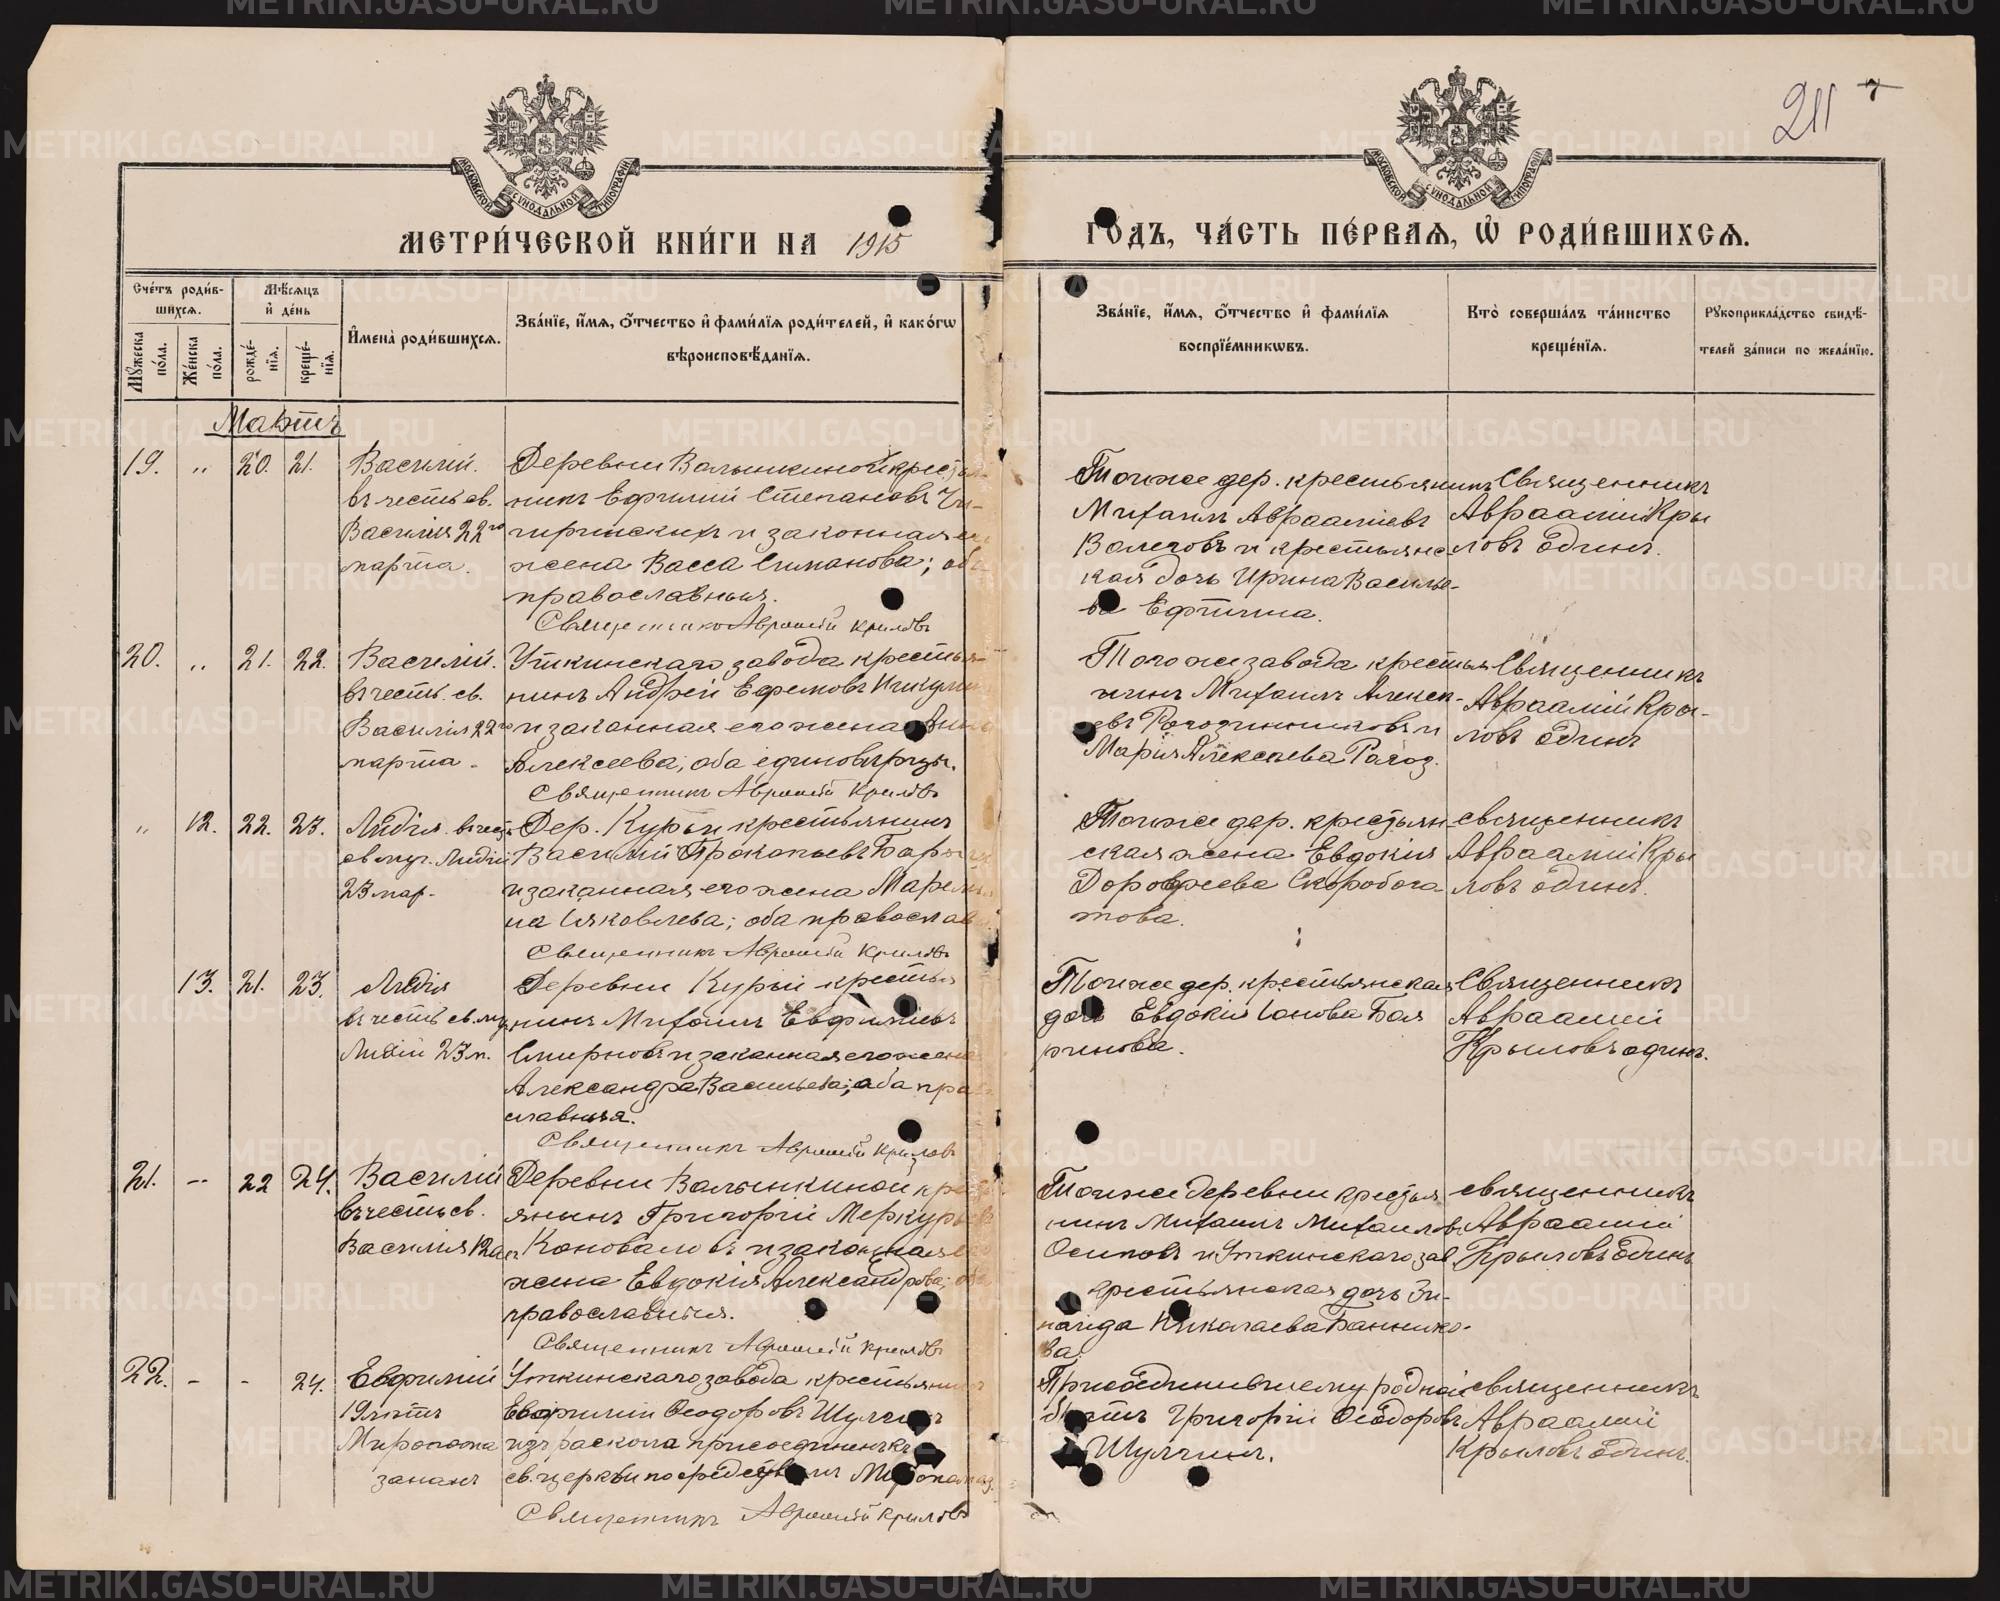 211 7
МОСКОВСКОЙ СѴНОДАЛЬНОЙ ТИПОГРАФІИ
МОСКОВСКОЙ СѴНОДАЛЬНОЙ ТИПОГРАФІИ
МЕТРИ́ЧЕСКОЙ КНИ́ГИ НА 1915
ГОДЪ, ЧА́СТЬ ПЕ́РВАѦ, Ѡ҆ РОДИ́ВШИХСѦ.
Сче́тъ роди́в-
шихсѧ.
Мꙋ́жеска по́ла.
Же́нска по́ла.
Мѣ́сѧцъ
и҆ де́нь
рожде́-
нїѧ.
креще́-
нїѧ.
И҆мена̀ роди́вшихсѧ.
Зва́нїе, и҆́мѧ, ѻ҆́тчество и҆ фами́лїѧ роди́телей, и҆ како́гѡ
вѣроисповѣ́данїѧ.
Зва́нїе, и҆́мѧ, ѻ҆́тчество и҆ фами́лїѧ
воспрїе́мникѡвъ.
Кто̀ соверша́лъ та́инство
креще́нїѧ.
Рꙋкоприкла́дство свидѣ́-
телей за́писи по жела́нїю.
Мартъ
19. " 20. 21.
Василій.
въ честь св.
Василія 22го
марта.
Деревни Волынкиной крестья-
нинъ Ефимій Степановъ Чи-
гиринскихъ и законная
жена Васса Симанова; оба
православныя.
Священникъ Авраамій Крыловъ
Тойже дер. крестьянинъ
Михаилъ Авраамиевъ
Волеговъ и крестьянс
кая дочь Ирина Василье-
ва
Священникъ
Авраамій Кры
ловъ один.
20. " 21. 22.
Василій.
въ честь св.
Василія 22го
марта.
Уткинскаго завода крестья-
нинъ Андрей Ефремовъ
и законная его жена
Алексеева; оба единоверцы.
Священникъ Авраамій Крыловъ
Того же завода крестья
нинъ Михаилъ Алексе-
евъ Рогозинниковъ и
Мария Алексеева Рогоз.
Священникъ
Авраамій Кры-
ловъ одинъ
" 12. 22. 23.
Лидія въ честь
св. муч. Лидіи
23 мар.
Дер. Курьи крестьянинъ
Василій Прокопьевъ
и законная его жена
на Яковлева; оба православ
Священникъ Авраамій Крыловъ
Тойже дер. крестьян-
ская жена Евдокія
Дорофеева Скоробога
това.
священникъ
Авраамій Кры
ловъ один.
13. 21. 23.
Лидія
въ честь св. му
Лидіи 23 м.
Деревни Курьи крестья
нинъ Михаилъ Евфимиевъ
Смирновъ и законная его жена
Александра Васильева; оба пра
славныя.
Священникъ Авраамій Крыловъ
Тойже дер. крестьянская
дочь Евдокія Іонова Боя
ринова.
Священникъ
Авраамій
Крыловъ один.
21. " 22 24.
Василій
въ честь св.
Василія
Деревни Волынкиной
янинъ Григорій Меркурьев
Коноваловъ и законная его
жена Евдокія Александрова; оба
православныя.
Священникъ Авраамій Крыловъ
Тойже деревни крестья
нинъ Михаилъ Михаилов
Осиповъ и Уткинского зав
крестьянская дочь Зи-
наида Николаева Баннико-
ва.
священникъ
Авраамій
Крыловъ одинъ
22. - - 24.
Евфимій
19 лѣтъ
Миропома
зананъ
Уткинскаго завода крестьянинъ
Евфимій Феодоровъ Шулгинъ
изъ раскола присоединенъ къ
св. церкви посредствомъ Миропомаз.
Священникъ Авраамій Крыловъ
Присоединившему родной
братъ Григорій Феодоровъ
Шулгин.
священникъ
Авраамій
Крыловъ один.